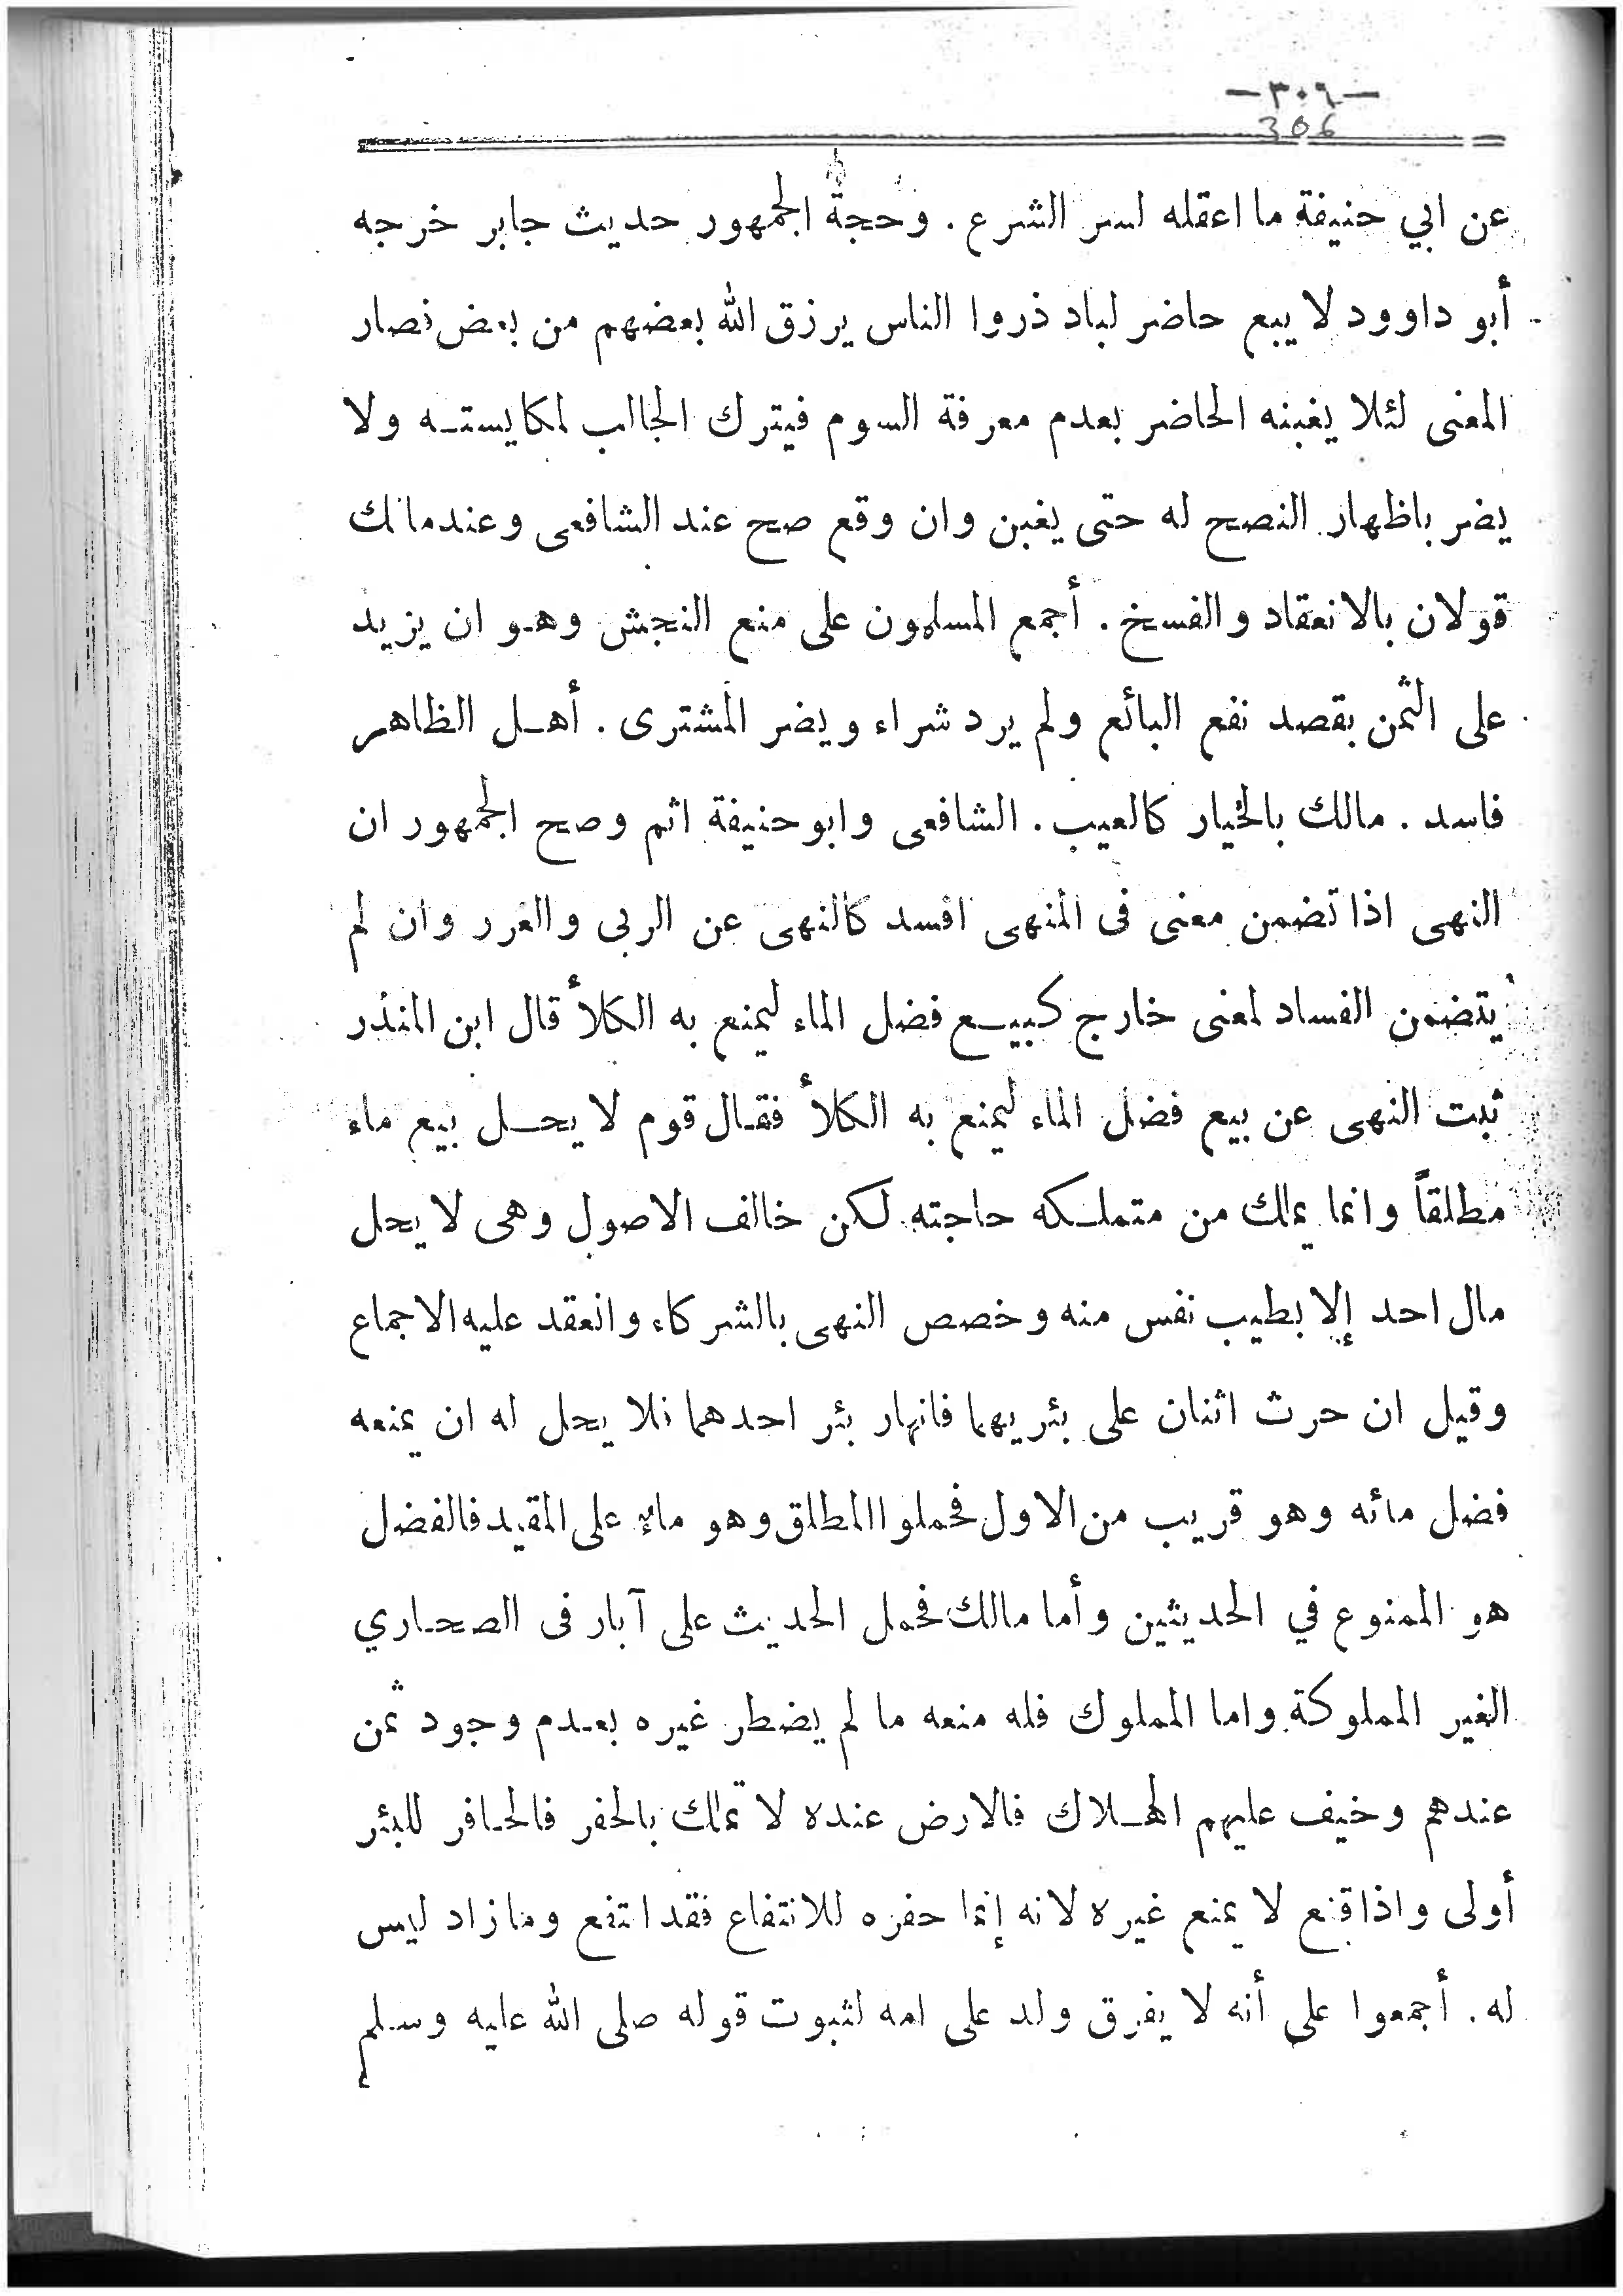 -٣٠٦-
306
عن ابي حنيفة ما اعقله لسر الشرع . وحجة الجمهور حديث جابر خرجه
أبو داوود لا يبع حاضر لباد ذروا الناس يرزق الله بعضهم من بعض فصار
المعنى لئلا يغبنه الحاضر بعدم معرفة السوم فيترك الجالب لمكايسته ولا
يضر باظهار النصح له حتى يغبن وان وقع صح عند الشافعى وعند مالك
قولان بالانعقاد والفسخ . أجمع المسلمون على منع النجش وهو ان يزيد
على الثمن بقصد نفع البائع ولم يرد شراء ويضر المشترى . أهل الظاهر
فاسد . مالك بالخيار كالعيب . الشافعى وابو حنيفة اثم وصح الجمهور ان
النهى اذا تضمن معنى فى المنهى افسد كالنهى عن الربى والغرر وان لم
يتضمن الفساد لمعنى خارج كبيع فضل الماء ليمنع به الكلأ قال ابن المنذر
ثبت النهى عن بيع فضل الماء ليمنع به الكلأ فقال قوم لا يحل بيع ماء
مطلقاً وانما يملك من متملكه حاجته لكن خالف الاصول وهى لا يحل
مال احد إلا بطيب نفس منه وخصص النهى بالشركاء وانعقد عليه الاجماع
وقيل ان حرث اثنان على بئريهما فانهار بئر احدهما فلا يحل له ان يمنعه
فضل مائه وهو قريب من الاول فحملوا المطلق وهو ماء على المقيد فالفضل
هو الممنوع في الحديثين وأما مالك فحمل الحديث على آبار فى الصحاري
الغير المملوكة واما المملوك فله منعه ما لم يضطر غيره بعدم وجود ثمن
عندهم وخيف عليهم الهلاك فالارض عنده لا تملك بالحفر فالحافر للبئر
أولى واذا قنع لا يمنع غيره لانه إنما حفره للانتفاع فقد انتفع وما زاد ليس
له . أجمعوا على أنه لا يفرق ولد على امه لثبوت قوله صلى الله عليه وسلم